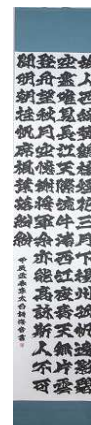 故人西辭黃鶴樓煙花三月下揚州孤帆遠影碧
空盡唯見長江天際流牛渚西江夜青天無片雲
登舟望秋月空憶謝將軍余亦能高詠斯人不可
聞明朝挂帆席楓葉落紛紛
太白詩 書